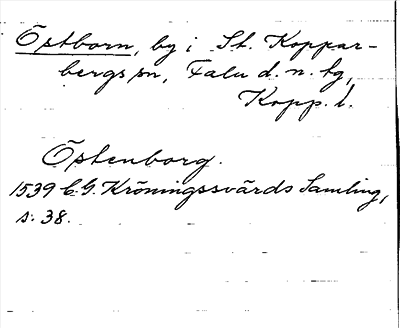 Östborn, by i St. Koppar-
bergs sn, Falu d. n. tg,
Kopp. l.
Östenborg.
1539 C. G. Kröningssvärds Samling,
s. 38.